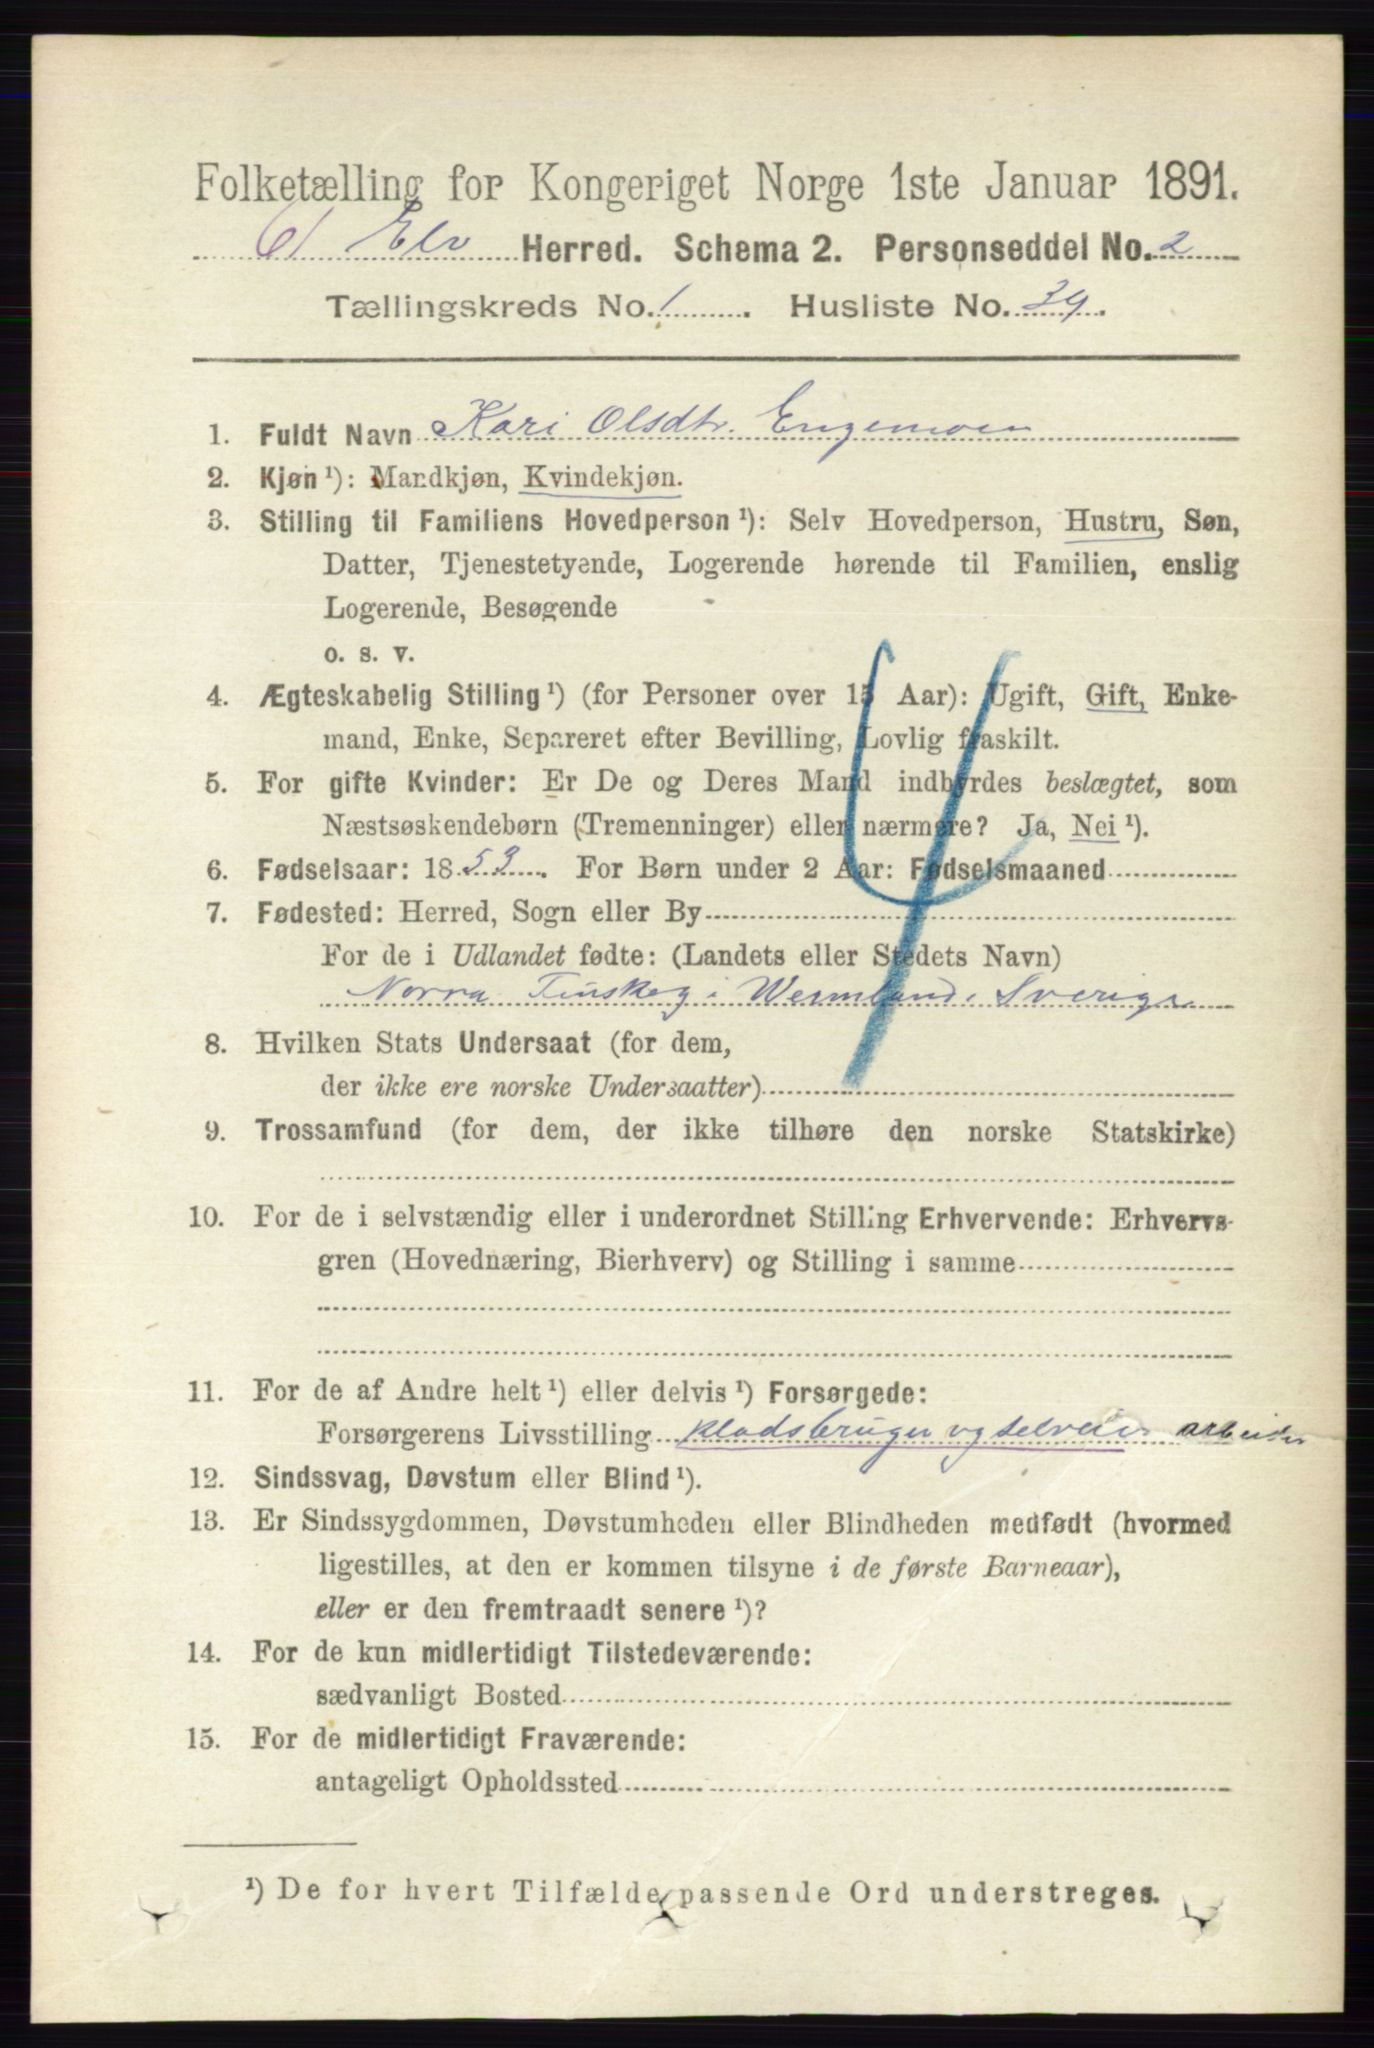 Folketælling for Kongeriget Norge 1ste Januar 1891.
Elv Herred. Schema 2. Personseddel No. 2
Tællingskreds No. 1. Husliste No. 39.
1. Fuldt Navn Kari Olsdtr. Engemoen
2. Kjøn ¹): Mandkjøn, Kvindekjøn.
3. Stilling til Familiens Hovedperson ¹): Selv Hovedperson, Hustru, Søn,
Datter, Tjenestetyende, Logerende hørende til Familien, enslig
Logerende, Besøgende
o. s. v.
4. Ægteskabelig Stilling ¹) (for Personer over 15 Aar): Ugift, Gift, Enke-
mand, Enke, Separeret efter Bevilling, Lovlig fraskilt.
5. For gifte Kvinder: Er De og Deres Mand indbyrdes beslægtet, som
Næstsøskendebørn (Tremenninger) eller nærmere? Ja, Nei ¹).
6. Fødselsaar: 1853. For Børn under 2 Aar: Fødselsmaaned
7. Fødested: Herred, Sogn eller By
For de i Udlandet fødte: (Landets eller Stedets Navn)
Norra Finskog i Wermland, Sverige
8. Hvilken Stats Undersaat (for dem,
der ikke ere norske Undersaatter)
9. Trossamfund (for dem, der ikke tilhøre den norske Statskirke)
10. For de i selvstændig eller i underordnet Stilling Erhvervende: Erhvervs-
gren (Hovednæring, Bierhverv) og Stilling i samme
11. For de af Andre helt ¹) eller delvis ¹) Forsørgede:
Forsørgerens Livsstilling Pladsbruger og selveier arbeider
12. Sindssvag, Døvstum eller Blind ¹).
13. Er Sindssygdommen, Døvstumheden eller Blindheden medfødt (hvormed
ligestilles, at den er kommen tilsyne i de første Barneaar),
eller er den fremtraadt senere ¹)?
14. For de kun midlertidigt Tilstedeværende:
sædvanligt Bosted
15. For de midlertidigt Fraværende:
antageligt Opholdssted
¹) De for hvert Tilfælde passende Ord understreges.
4